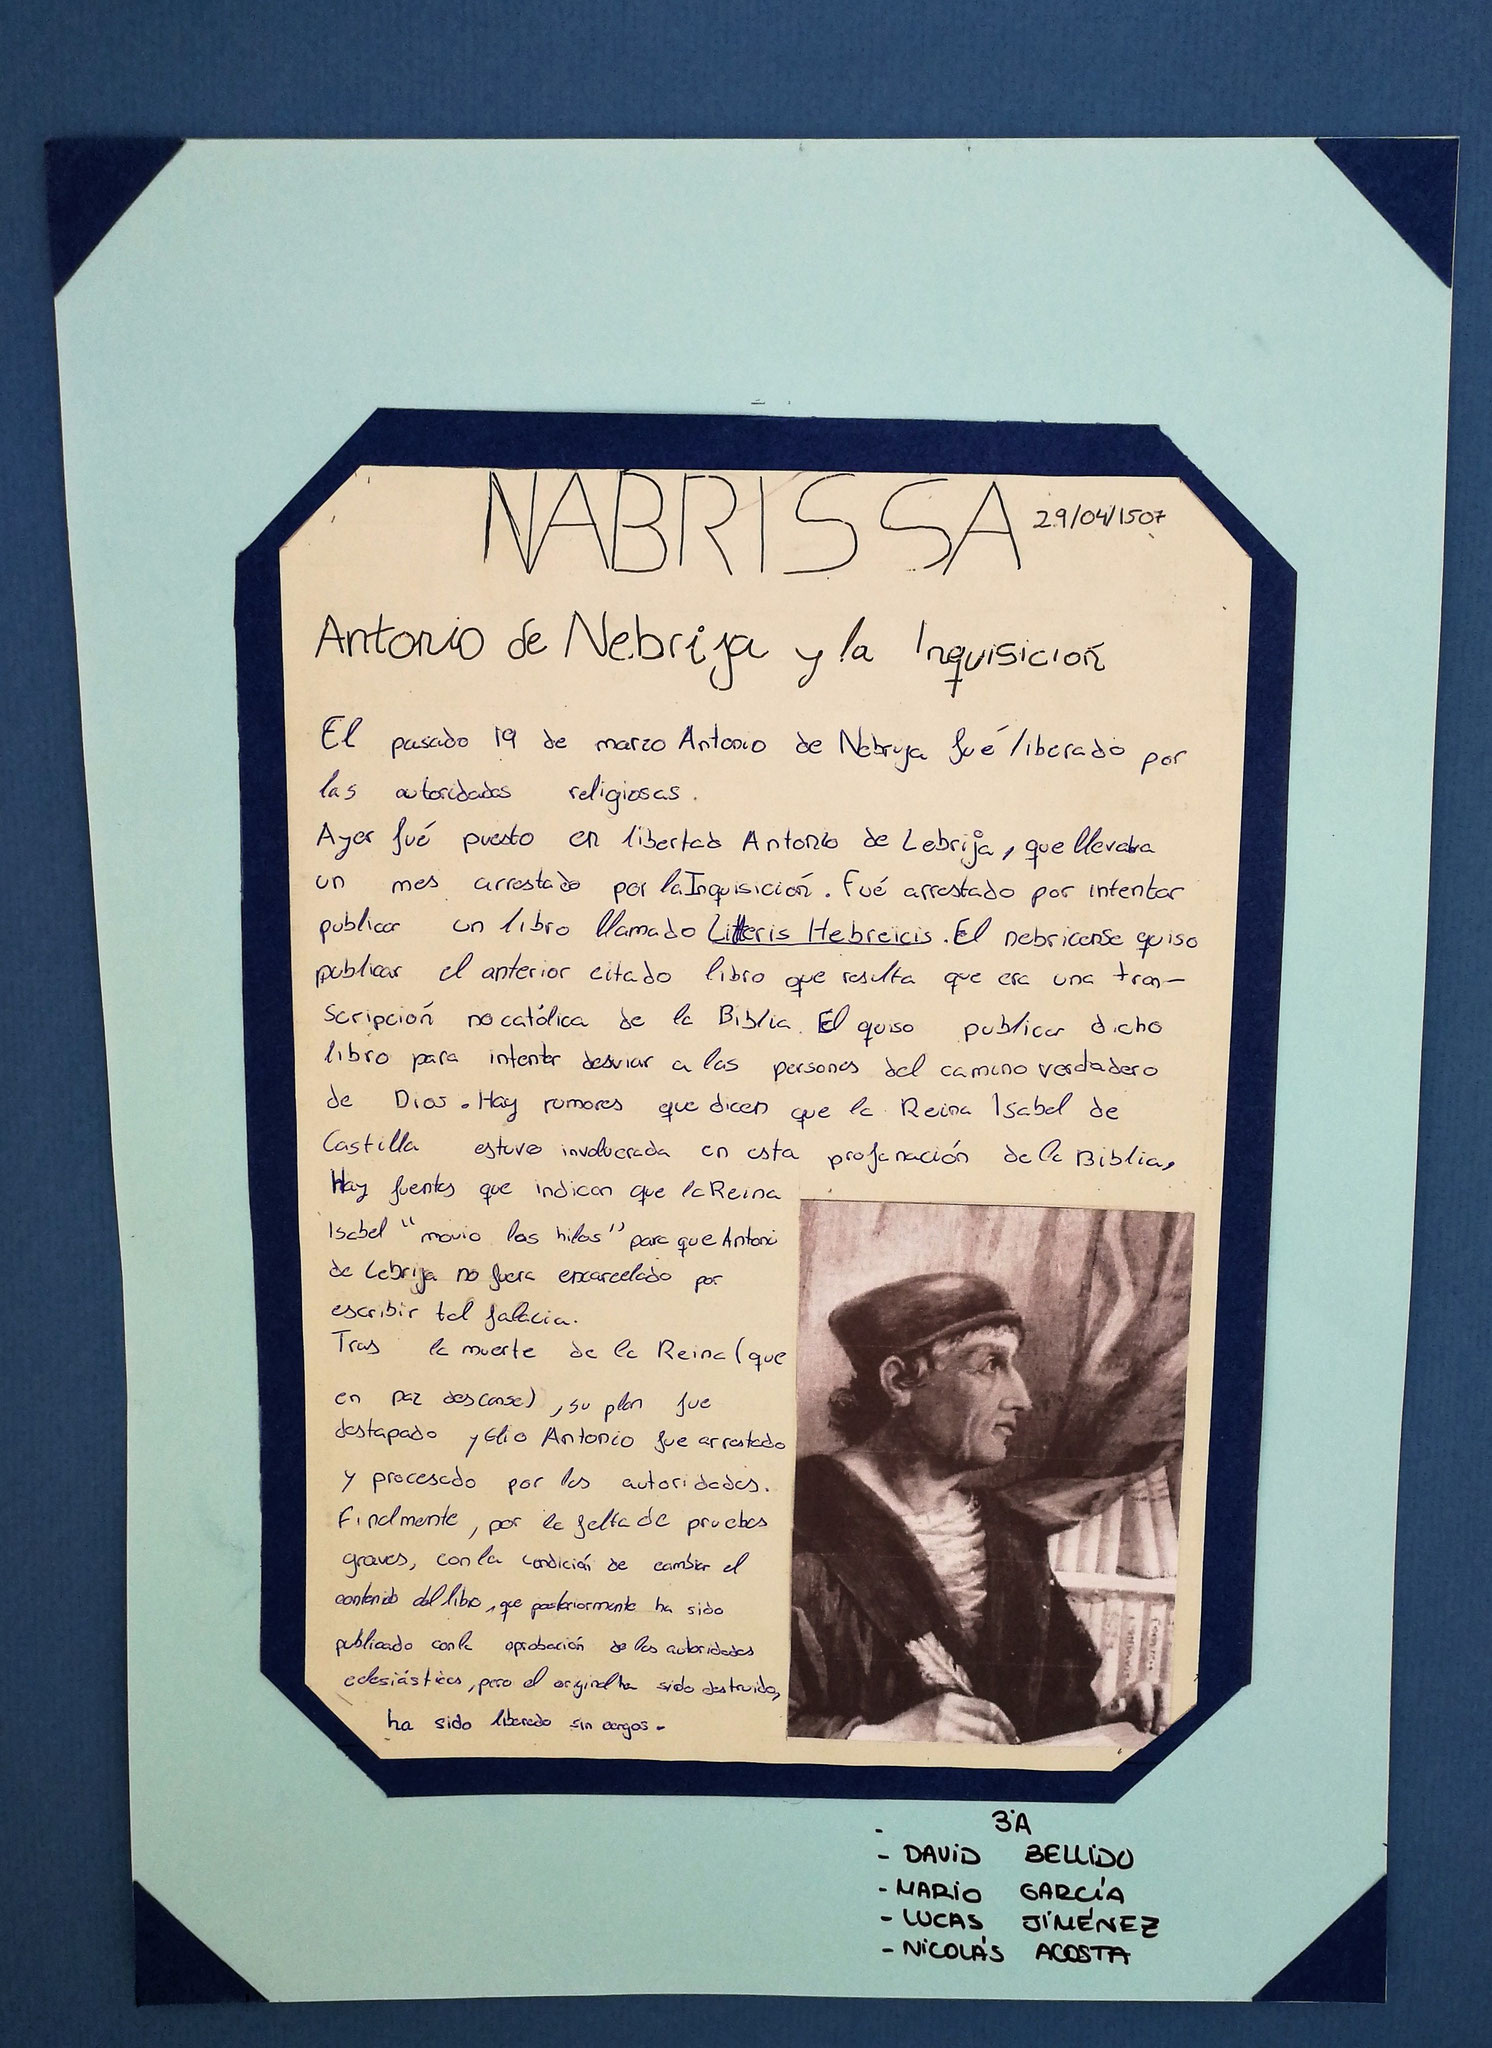 NABRISSA 29/04/1507
Antonio de Nebrija y la Inquisición
El pasado 19 de marzo Antonio de Nebrija fué liberado por
las autoridades religiosas.
Ayer fué puesto en libertad Antonio de Lebrija, que llevaba
un mes arrestado por la Inquisición. Fué arrestado por intentar
publicar un libro llamado Litteris Hebreicis. El nebricense quiso
publicar el anterior citado libro que resulta que era una tran-
scripción no católica de la Biblia. El quiso publicar dicho
libro para intentar desviar a las personas del camino verdadero
de Dios. Hay rumores que dicen que la Reina Isabel de
Castilla estuvo involucrada en esta profanación de la Biblia,
Hay fuentes que indican que la Reina
Isabel "movio los hilos" para que Antonio
de Lebrija no fuera encarcelado por
escribir tal falacia.
Tras la muerte de la Reina (que
en paz descanse), su plan fue
destapado y Elio Antonio fue arrestado
y procesado por las autoridades.
Finalmente, por la falta de pruebas
graves, con la condición de cambiar el
contenido del libro, que posteriormente ha sido
publicado con la aprobación de las autoridades
eclesiásticas, pero el original ha sido destruido,
ha sido liberado sin cargos.
3ºA
- DAVID BELLIDO
- MARIO GARCÍA
- LUCAS JIMÉNEZ
- NICOLÁS ACOSTA